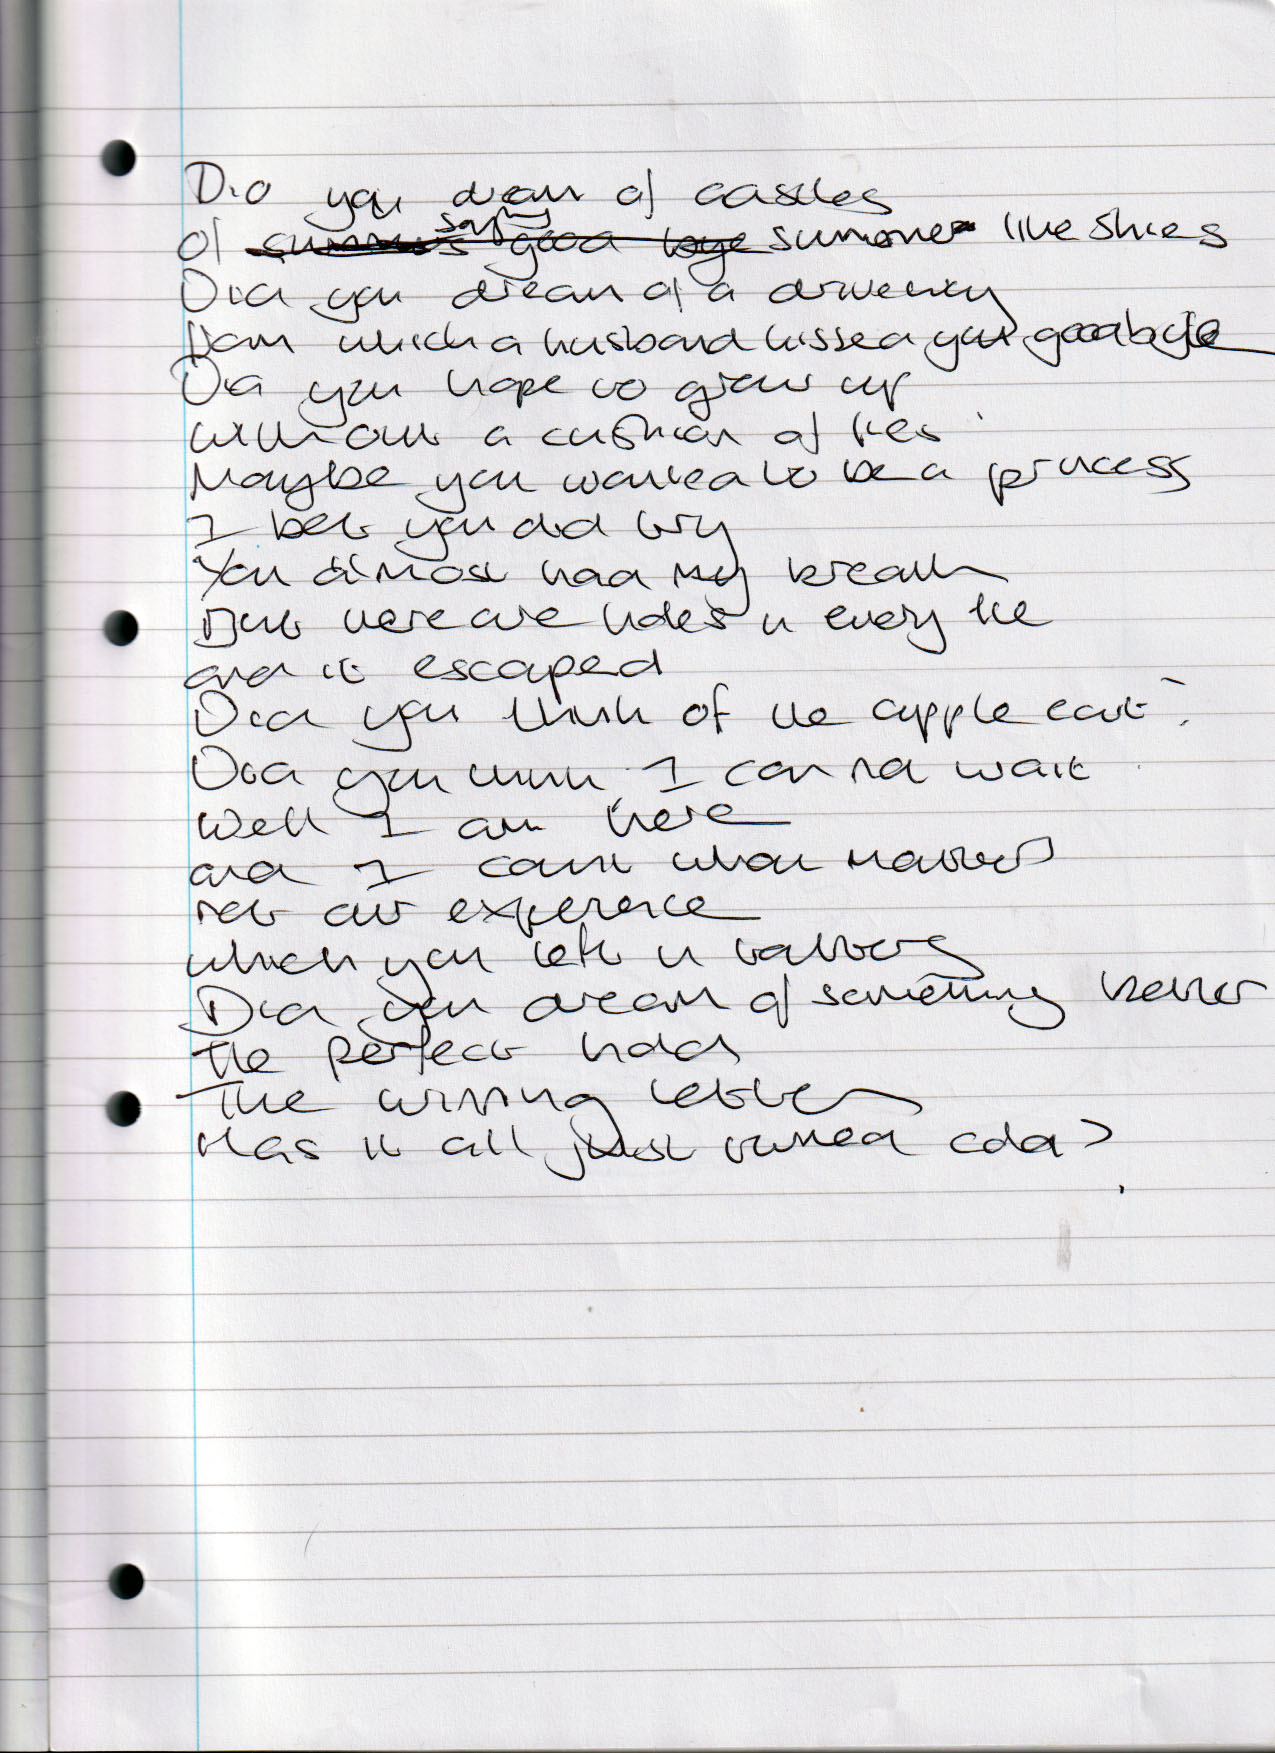 Did you dream of castles
Of summers saying good bye summer like skies
Did you dream of a driveway
From which a husband kissed you goodbye
Did you hope to grow up
without a cushion of lies
Maybe you wanted to be a princess
I bet you did try
You almost had my breath
But there are holes in every lie
and it escaped
Did you think of the apple cart?
Did you think I can not wait
Well I am here
and I count what matters
not our experience
which you left in tatters
Did you dream of something better
The perfect hold
The winning letter
Has it all just turned cold?